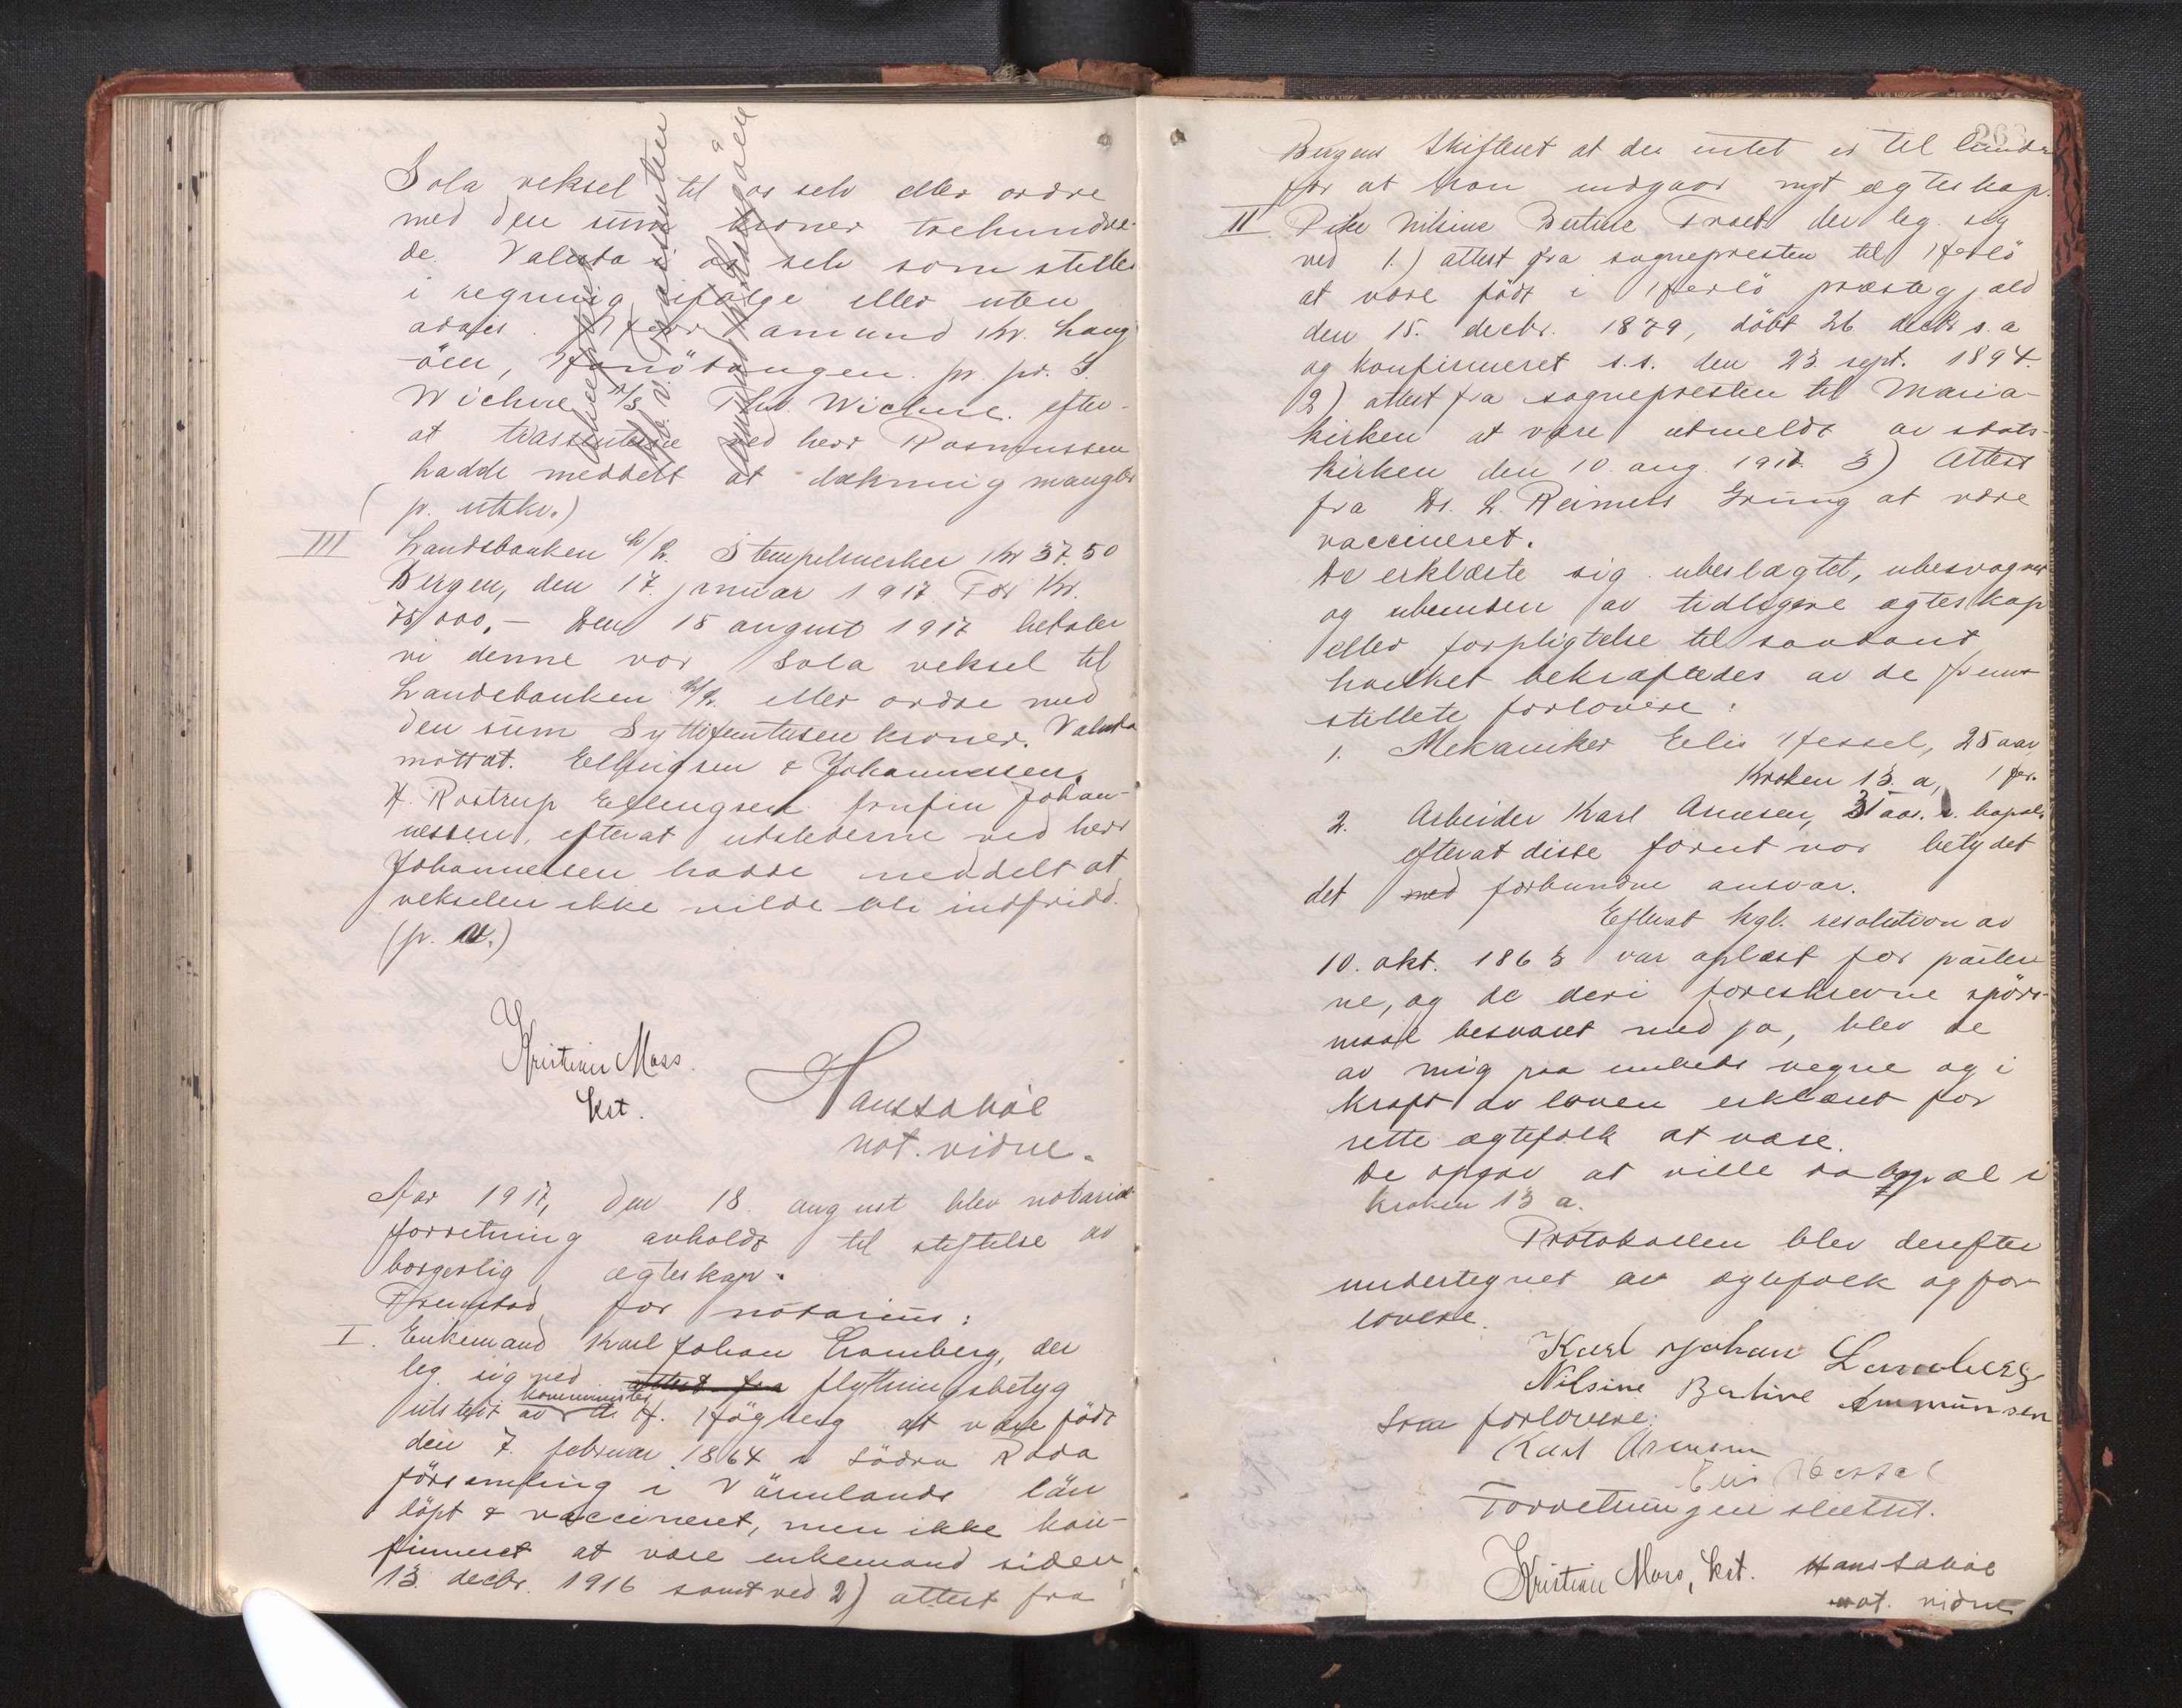 Sola veksel til os selv eller ordre
med den sum kroner trehundre-
de. Valuta i os selv som stilles
i regning ifølge eller uten
advis. Herr Amund Kr. Haug-
öen, Hanöytangen. pr. pr. J.
Wichne A/S Thv. Wichne. efter-
at trassenterne ved herr Rasmussen
hadde meddelt at dekning mangler
(p. utskr.)
III Landsbanken A/S. Stempelmerker Kr 37.50
Bergen, den 17. januar 1917. For Kr.
75,000,- Den 15 august 1917 betaler
vi denne vor sola veksel til
Landsbanken A/S. eller ordre med
den sum Syttifemtusen kroner. Valuta
mottat. Ellingsen & Johannessen.
H. Rostrup Ellingsen. Johan-
nessen, efterat utstederne ved herr
Johannessen hadde meddelt at
vekselen ikke vilde bli indfridd.
(p. u.)
Kristian Moss.
kst.
Hans
not. vidne.
Aar 1917, den 18. august blev notarial
forretning avholdt til stiftelse av
borgerlig ægteskap.
Fremstod for notarius:
I. Enkemand Karl Johan Lramberg, der
leg. sig ved attest fra flytningsbetyg
utstedt av komminister H. Högberg at være født
den 7. februar 1864 i Södra Råda
församling i Värmlands län
döpt & vaccineret, men ikke kon-
firmeret at være enkemand siden
13. decbr. 1916 samt ved 2) attest fra
263
Bergens Skifteret at der intet er til hinder
for at han indgaar nyt ægteskap.
II. Pike Nilsine Bertine der leg. sig
ved 1.) attest fra sognepresten til Herlö
at være födt i Herlö præstegjæld
den 15. decbr. 1879, döbt 26 decbr s.a
og konfirmeret s.s. den 23. sept. 1894.
2) attest fra sognepresten til Maria-
kirken at være utmeldt av stats-
kirken den 10. aug. 1917. 3) Attest
fra Dr. L. Reimers Grung at være
vaccineret.
De erklærte sig ubeslægtet, ubesvogret
og ubunden av tidligere ægteskap
eller forpligtelse til saadant
hvilket bekræftedes av de frem-
stillete forlovere:
1. Mekaniker Elis Hessel, 25 aar,
Kroken 13. a,
2. Arbeider Karl Arnesen, 31 aar. s. bopæl.
efterat disse forut var betydet
det med forbundne ansvar.
Efterat kgl. resolution av
10. okt. 1863 var oplæst for parter-
ne, og de deri foreskrevne spörs-
maal besvaret med ja, blev de
av mig paa embeds vegne og i
kraft av loven erklæret for
rette ægtefolk at være.
De opgav at ville ta bopæl i
Kroken 13 a.
Protokollen blev derefter
undertegnet av ægtefolk og for-
lovere.
Karl Johan
Nilsine Bertine Ammunsen
Som forlovere:
Karl Arnesen
Elis Hessel
Forretningen sluttet.
Kristian Moss, kst. Hans
not. vidne